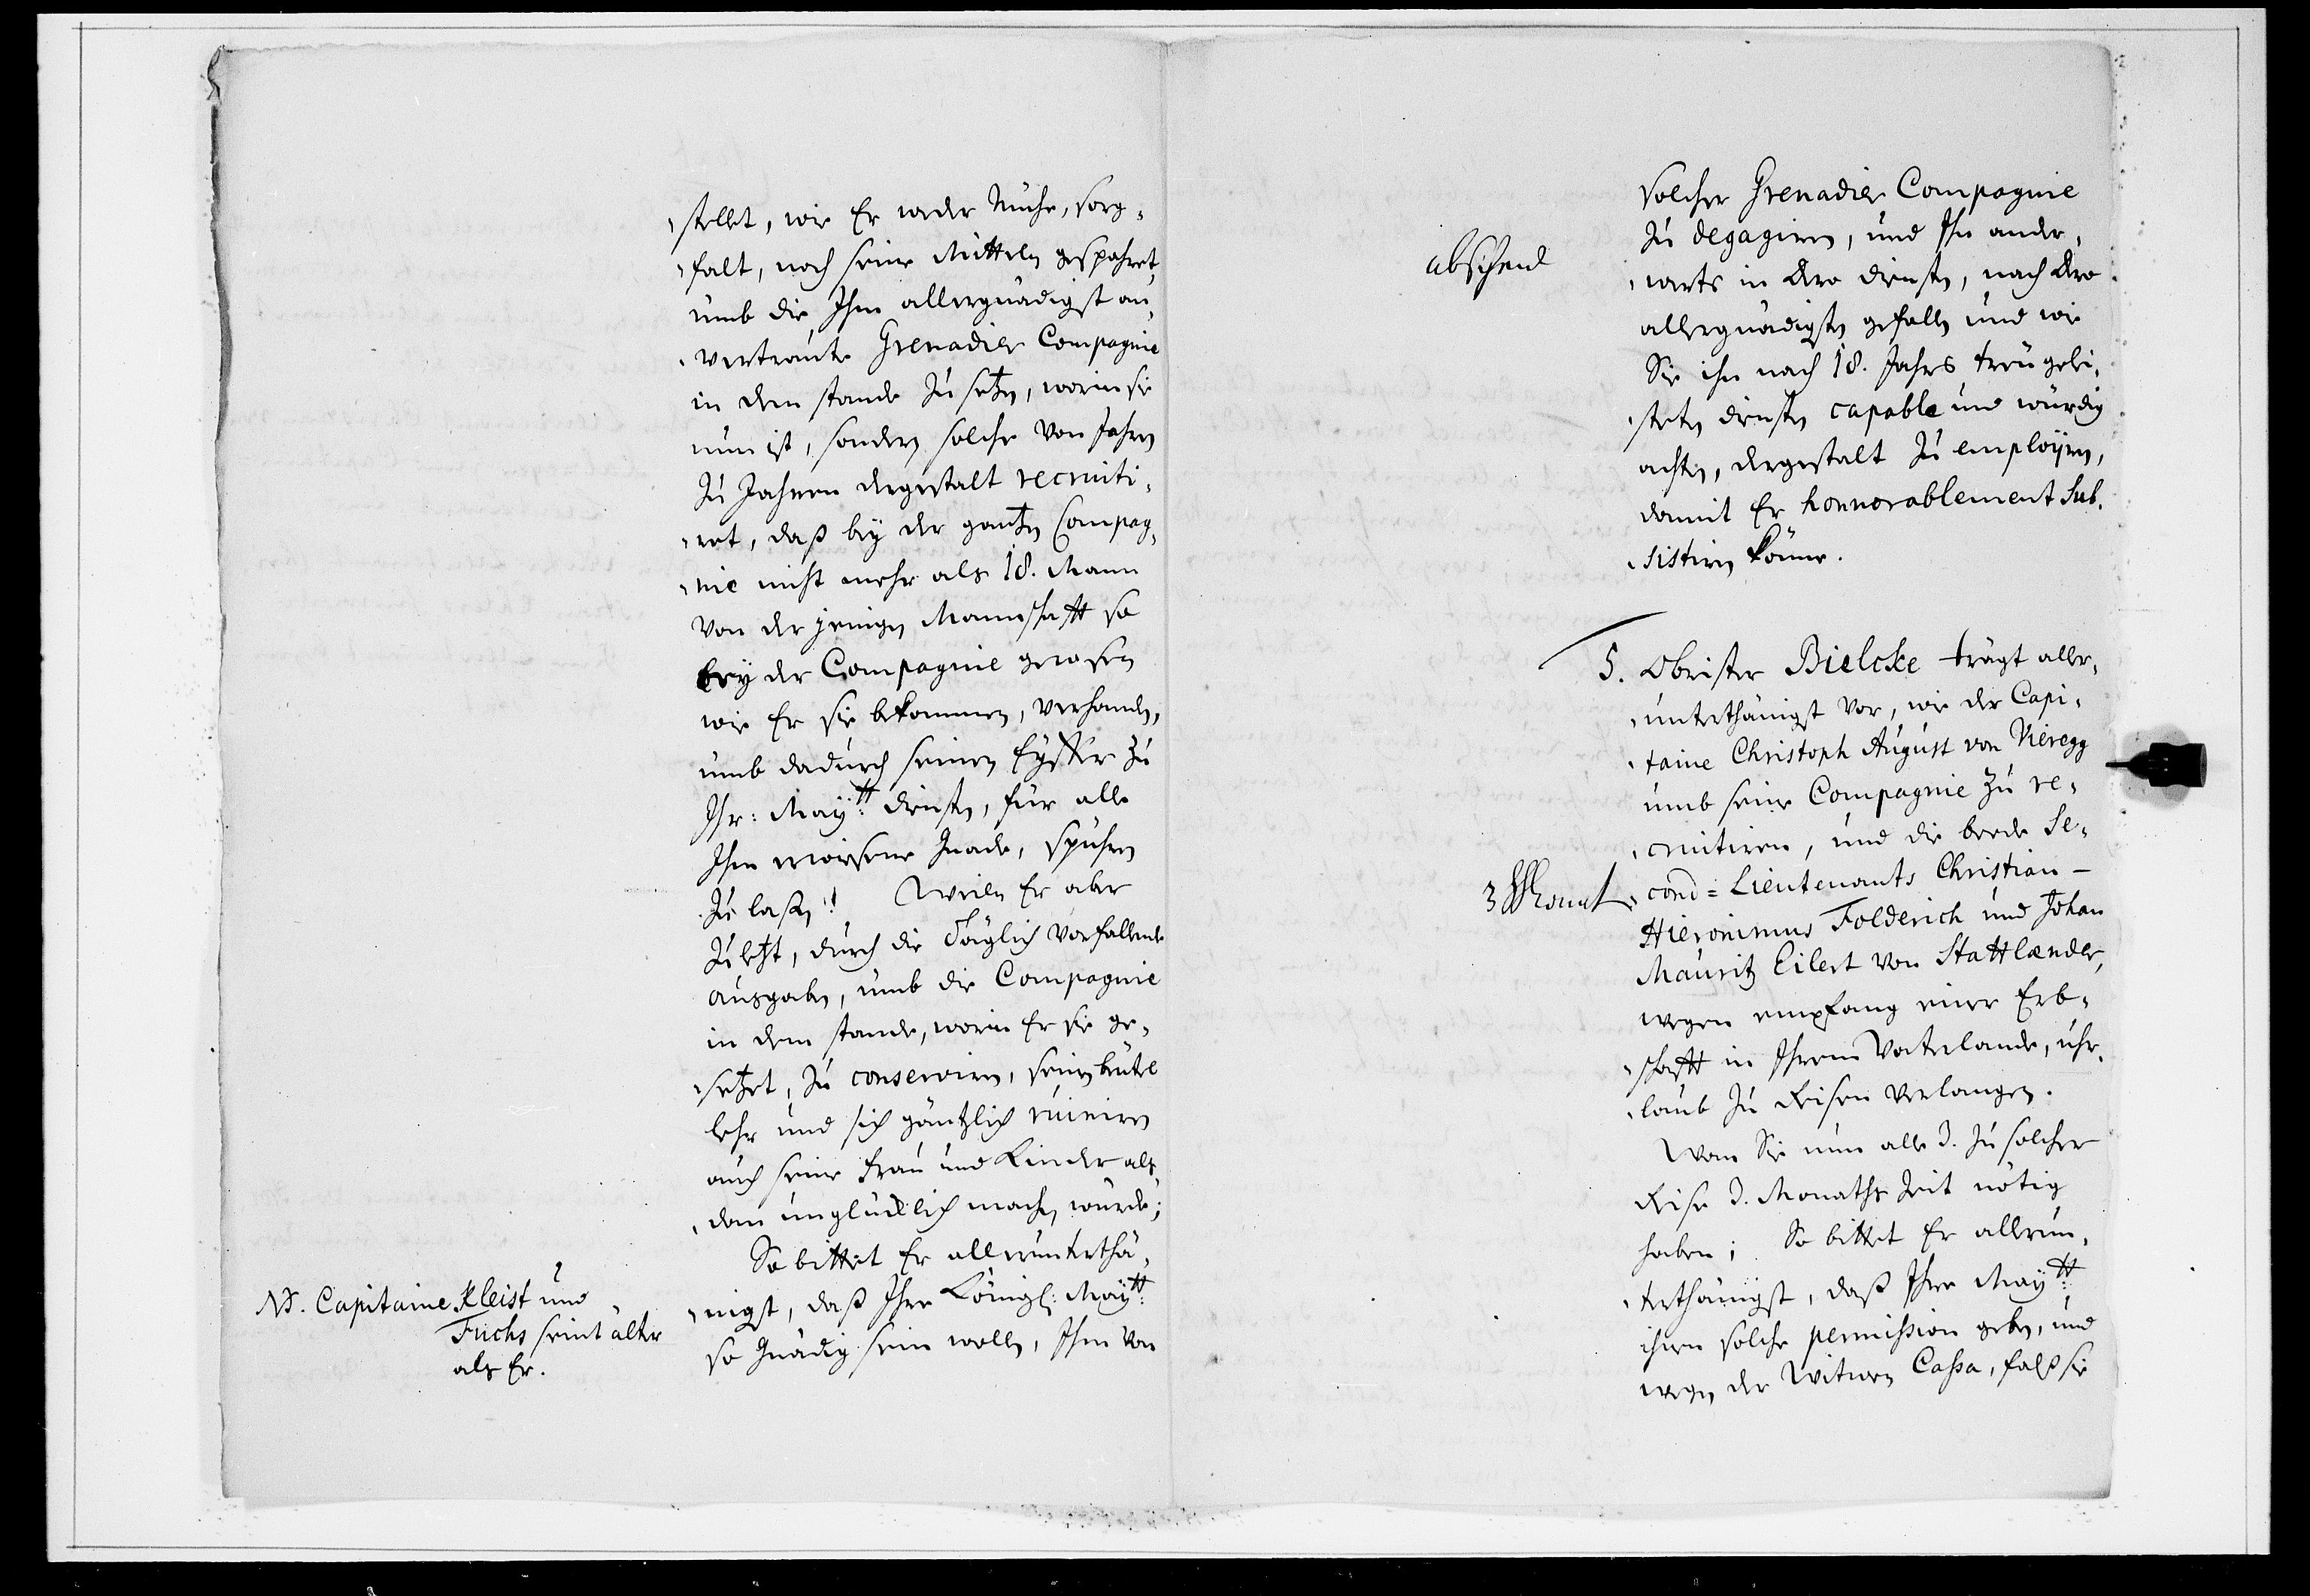 stellet, wie Er weder Mühe, sorg-
falt, noch seine Mitteln gespahret,
umb die Ihm allergnädigst an-
vertraute Grenadier Compagnie
in dem stande zu setzen, worin sie
nun ist, sondern solche von Jahren
zu Jahren dergestalt recruiti-
ret, daß bey der gantzen Compag-
nie nicht mehr als 18. Mann
von derjenigen Mannschafft so
bey der Compagnie gewesen
wie Er sie bekommen, verhanden,
umb dadurch seinen Eyffer zu
Ihr: Maytt: diensten, für alle
Ihm erwiesene Gnade, spühren
zu laßen! Weilen Er aber
zuletzt, durch die täglich vorfallende
ausgaben, umb die Compagnie
in dem stande, worin Er sie ge-
setzet, zu conserviren, seinen beutel
lehr und sich gäntzlich ruiniren
auch seine frau und Kinder als-
dan unglücklich machen würde;
So bittet Er allerunterthä-
nigst, daß Ihre Königl: Maytt:
so gnädig sein wollen, Ihm von
NB. Capitaine Kleist und
Fuchs seint älter
als Er.
solcher Grenadier Compagnie
zu degagiren, und Ihn ander-
warts in Dero diensten, nach Dero
allergnädigsten gefallen und wie
Sie ihn nach 18. Jahres treu gelei-
steten diensten capable und würdig
achten, dergestalt zu employren,
damit Er honnorablement sub-
sistiren könne.
abscheid
5. Obrister Bielcke trägt aller-
unterthänigst vor, wie der Capi-
taine Christoph August von Vieregg
umb seine Compagnie zu re-
cruitiren, und die beede Se-
cond-Lieutenants Christian-
Hieronimus Folderich und Johan
Mauritz Eilert von Stattlænder,
wegen empfang einer Erb-
schafft in Ihrem Vaterlande, uhr-
laub zu Reisen verlangen.
Wan Sie nun alle 3. zu solcher
Reise 3. Monathe Zeit nötig
haben; So bittet Er allerun-
terthänigst, daß Ihre Maytt:
ihnen solche permission geben, und
wegen der Witwen Cassa, falß sie
3 Monat